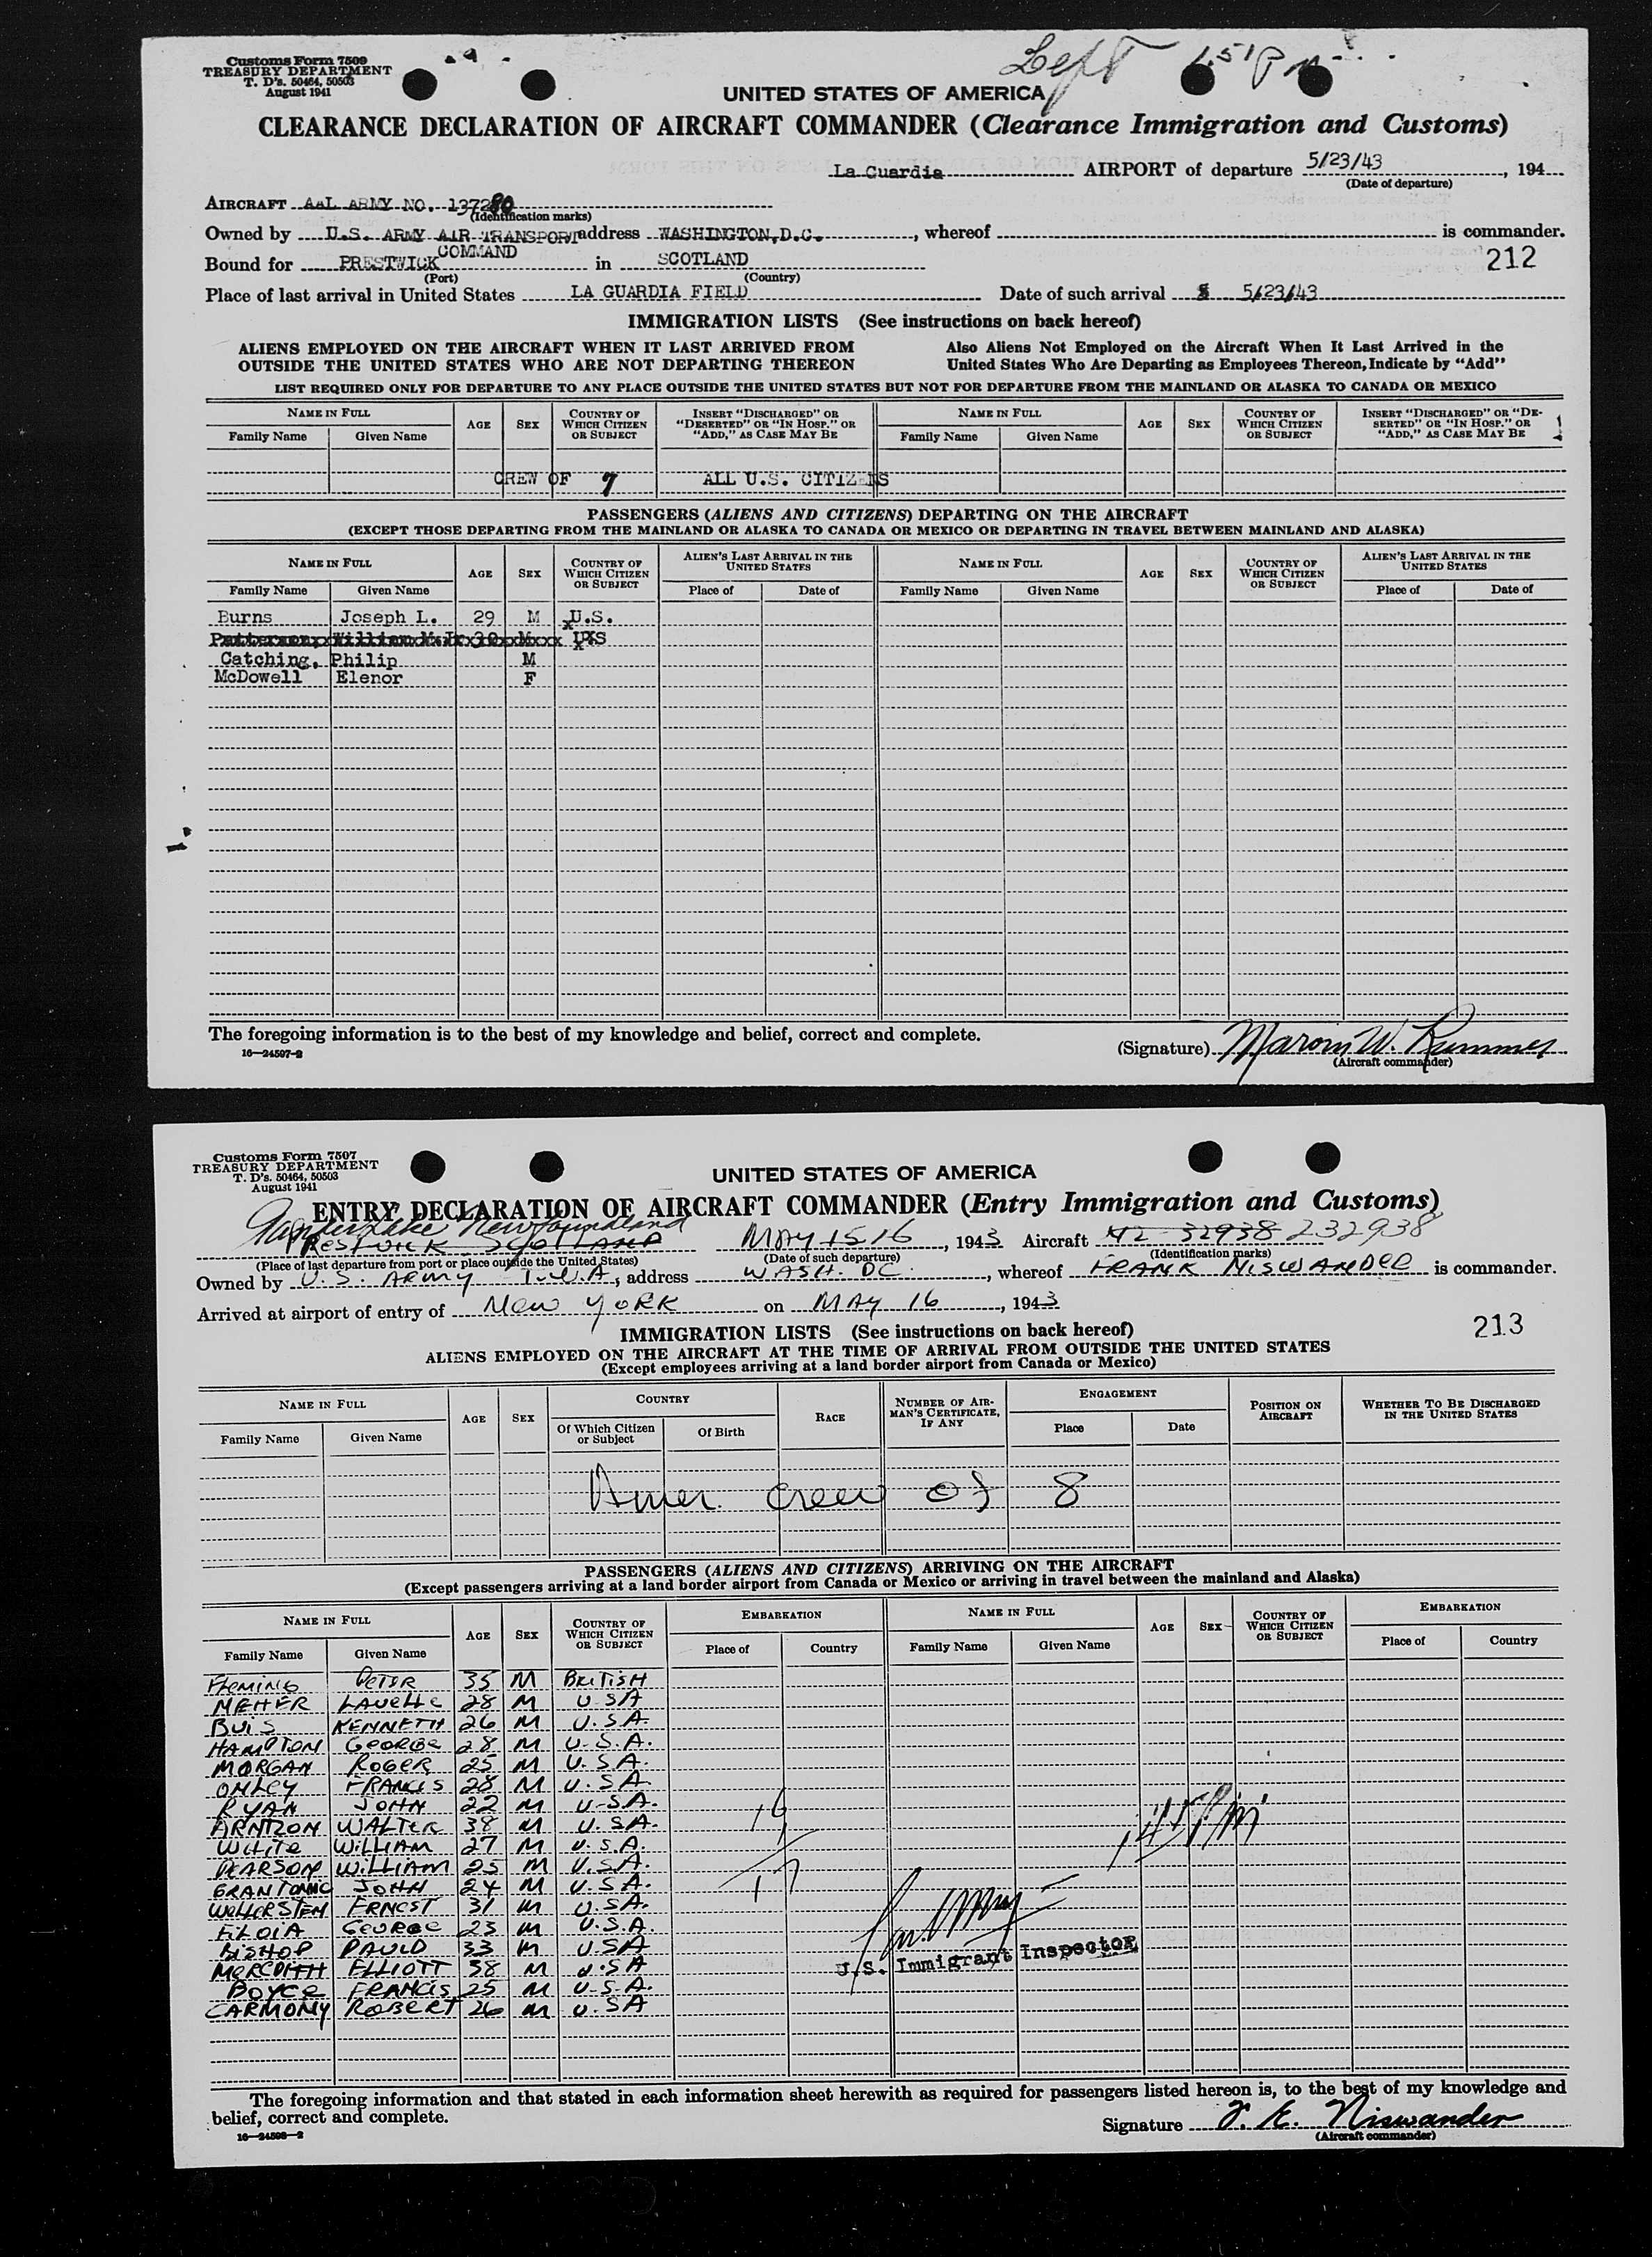 Customs Form 7509
TREASURY DEPARTMENT
T. D's. 50464, 50503
August 1941
Left 1.51 Pm
UNITED STATES OF AMERICA
CLEARANCE DECLARATION OF AIRCRAFT COMMANDER (Clearance Immigration and Customs)
La Guardia AIRPORT of departure 5/23/43, 194
(Date of departure)
AIRCRAFT AAL ARMY NO. 137280
(Identification marks)
Owned by U.S. ARMY AIR TRANSPORT COMMAND address WASHINGTON, D.C., whereof is commander.
Bound for PRESTWICK in SCOTLAND 212
(Port) (Country)
Place of last arrival in United States LA GUARDIA FIELD Date of such arrival 5/23/43
IMMIGRATION LISTS (See instructions on back hereof)
ALIENS EMPLOYED ON THE AIRCRAFT WHEN IT LAST ARRIVED FROM OUTSIDE THE UNITED STATES WHO ARE NOT DEPARTING THEREON
Also Aliens Not Employed on the Aircraft When It Last Arrived in the United States Who Are Departing as Employees Thereon, Indicate by "Add"
LIST REQUIRED ONLY FOR DEPARTURE TO ANY PLACE OUTSIDE THE UNITED STATES BUT NOT FOR DEPARTURE FROM THE MAINLAND OR ALASKA TO CANADA OR MEXICO
NAME IN FULL AGE SEX COUNTRY OF WHICH CITIZEN OR SUBJECT INSERT "DISCHARGED" OR "DESERTED" OR "IN HOSP." OR "ADD," AS CASE MAY BE NAME IN FULL AGE SEX COUNTRY OF WHICH CITIZEN OR SUBJECT INSERT "DISCHARGED" OR "DESERTED" OR "IN HOSP." OR "ADD," AS CASE MAY BE
Family Name Given Name Family Name Given Name
CREW OF 7 ALL U.S. CITIZENS
PASSENGERS (ALIENS AND CITIZENS) DEPARTING ON THE AIRCRAFT
(EXCEPT THOSE DEPARTING FROM THE MAINLAND OR ALASKA TO CANADA OR MEXICO OR DEPARTING IN TRAVEL BETWEEN MAINLAND AND ALASKA)
NAME IN FULL AGE SEX COUNTRY OF WHICH CITIZEN OR SUBJECT ALIEN'S LAST ARRIVAL IN THE UNITED STATES NAME IN FULL AGE SEX COUNTRY OF WHICH CITIZEN OR SUBJECT ALIEN'S LAST ARRIVAL IN THE UNITED STATES
Family Name Given Name Place of Date of Family Name Given Name Place of Date of
Burns Joseph L. 29 M U.S.
Patterson, William M. Jr 30 M US
Catching, Philip M
McDowell Elenor F
The foregoing information is to the best of my knowledge and belief, correct and complete.
16—24597-2
(Signature)
(Aircraft commander)
Customs Form 7507
TREASURY DEPARTMENT
T. D's. 50464, 50503
August 1941
UNITED STATES OF AMERICA
ENTRY DECLARATION OF AIRCRAFT COMMANDER (Entry Immigration and Customs)
Gander Lake Newfoundland
PRESTWICK SCOTLAND MAY 15 16, 1943 Aircraft 42-32938 232938
(Place of last departure from port or place outside the United States) (Date of such departure) (Identification marks)
Owned by U.S. ARMY T.W.A, address WASH. DC., whereof FRANK NISWANDER is commander.
Arrived at airport of entry of NEW YORK on MAY 16, 1943
213
IMMIGRATION LISTS (See instructions on back hereof)
ALIENS EMPLOYED ON THE AIRCRAFT AT THE TIME OF ARRIVAL FROM OUTSIDE THE UNITED STATES
(Except employees arriving at a land border airport from Canada or Mexico)
NAME IN FULL AGE SEX COUNTRY RACE NUMBER OF AIRMAN'S CERTIFICATE, IF ANY ENGAGEMENT POSITION ON AIRCRAFT WHETHER TO BE DISCHARGED IN THE UNITED STATES
Family Name Given Name Of Which Citizen or Subject Of Birth Place Date
Amer. crew of 8
PASSENGERS (ALIENS AND CITIZENS) ARRIVING ON THE AIRCRAFT
(Except passengers arriving at a land border airport from Canada or Mexico or arriving in travel between the mainland and Alaska)
NAME IN FULL AGE SEX COUNTRY OF WHICH CITIZEN OR SUBJECT EMBARKATION NAME IN FULL AGE SEX COUNTRY OF WHICH CITIZEN OR SUBJECT EMBARKATION
Family Name Given Name Place of Country Family Name Given Name Place of Country
FLEMING PETER 35 M BRITISH
MEHER LAVELLE 28 M U.S.A
BUIS KENNETH 26 M U.S.A.
HAMPTON GEORGE 28 M U.S.A.
MORGAN ROGER 25 M U.S.A.
ONLEY FRANCIS 28 M U.S.A
RYAN JOHN 22 M U.S.A.
ARNTZON WALTER 38 M U.S.A.
WHITE WILLIAM 27 M U.S.A.
PEARSON WILLIAM 25 M U.S.A.
JOHN 24 M U.S.A.
WALLERSTEN ERNEST 31 M U.S.A.
GEORGE 23 M U.S.A.
BISHOP DAVID 33 M U.S.A
MEREDITH ELLIOTT 38 M U.S.A
BOYCE FRANCIS 25 M U.S.A.
CARMONY ROBERT 26 M U.S.A
U.S. Immigrant Inspector
The foregoing information and that stated in each information sheet herewith as required for passengers listed hereon is, to the best of my knowledge and
belief, correct and complete.
16—24598-2
Signature F. E. Niswander
(Aircraft commander)